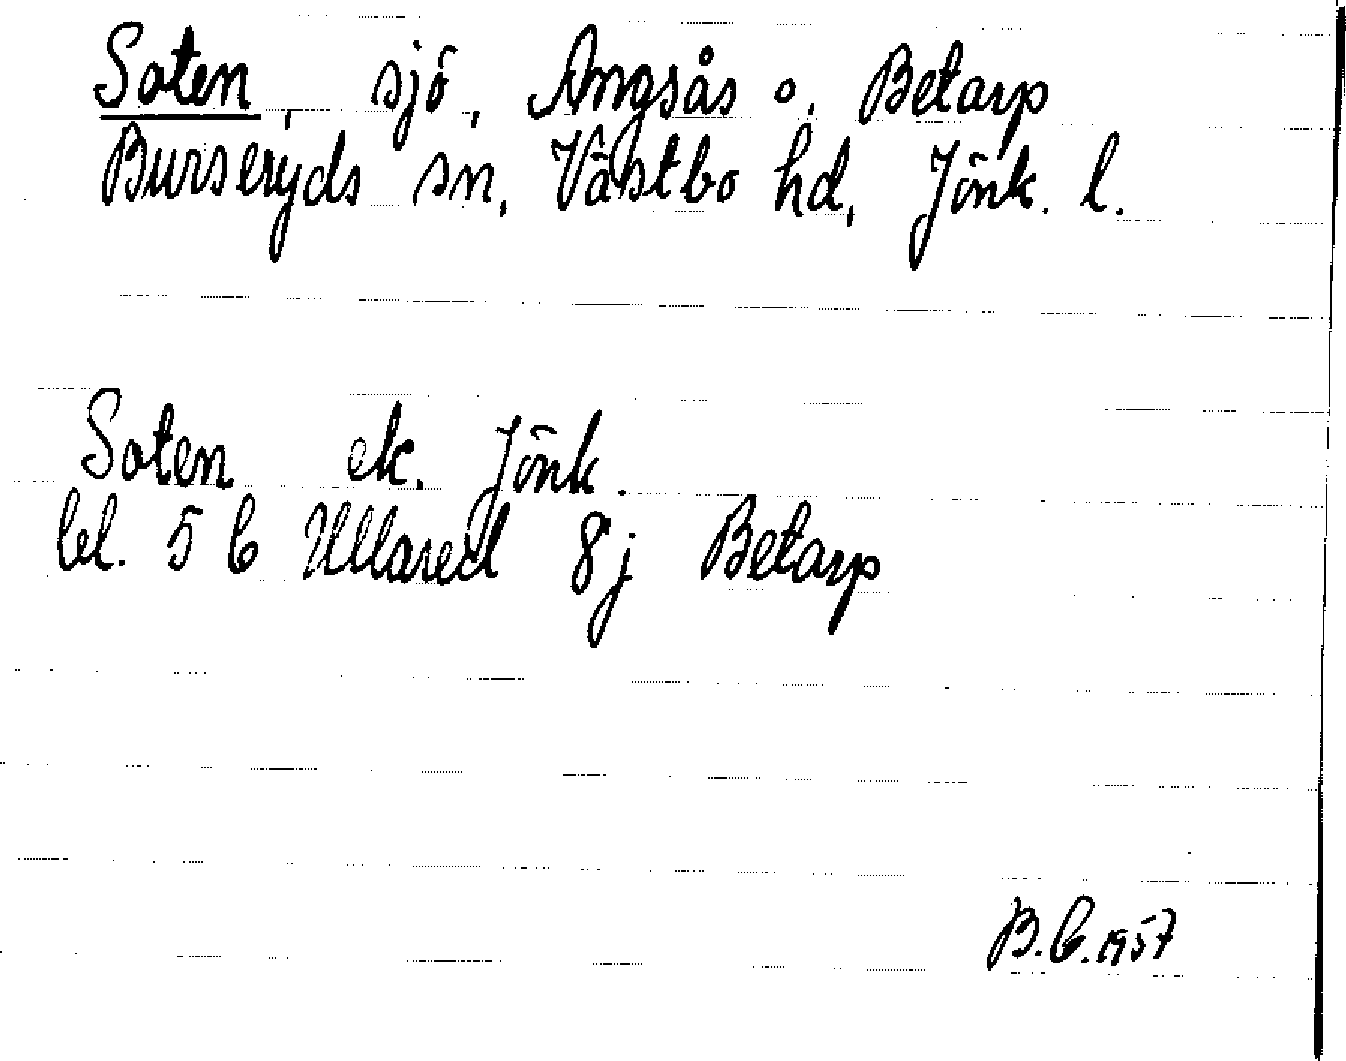 Soten, sjö, Angsås o. Betarp
Burseryds sn, Västbo hd, Jönk. l.
Soten ek. Jönk.
bl. 5 C Ullared 8j Betarp
B.C. 1957